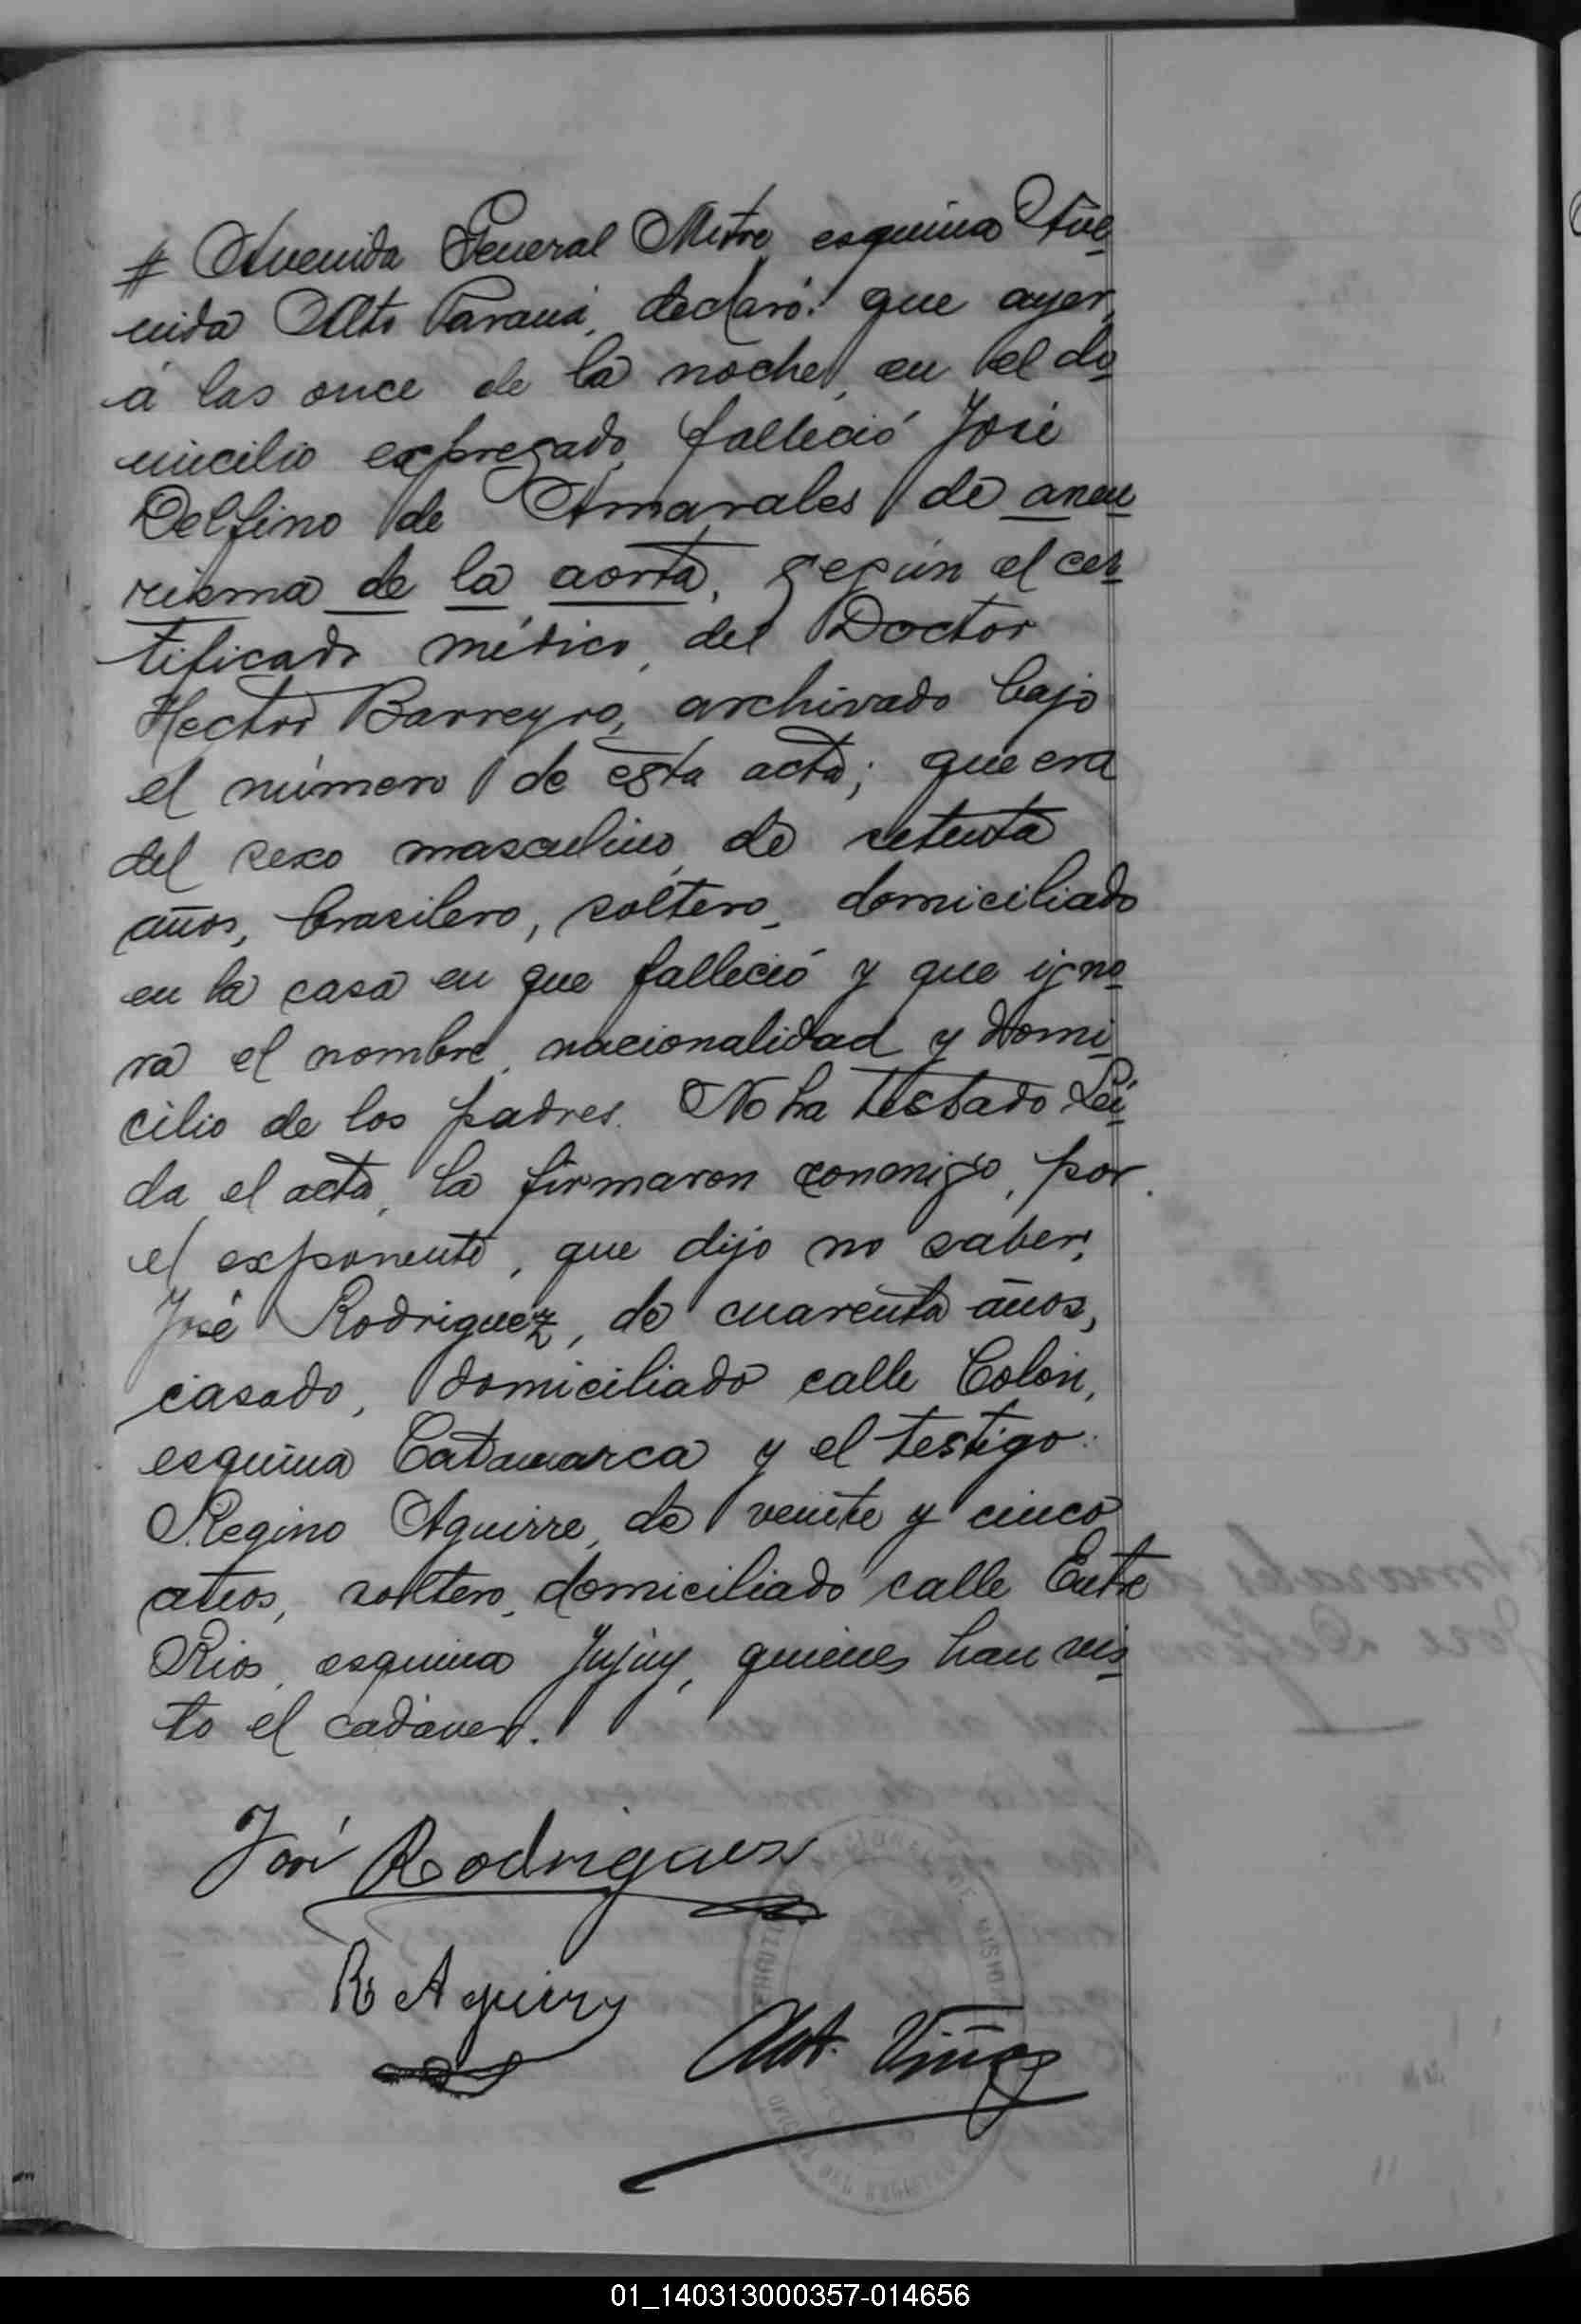 # Avenida General Mitre esquina Ave-
nida Alto Paraná, declaró: que ayer,
á las once de la noche, en el do-
micilio expresado, falleció José
Delfino de Amarales, de aneu-
risma de la aorta, según el cer-
tificado médico, del Doctor
Hector Barreyro, archivado bajo
el número de esta acta; que era
del sexo masculino, de setenta
años, brasilero, soltero, domiciliado
en la casa en que falleció y que igno-
ra el nombre, nacionalidad y domi-
cilio de los padres. No ha testado. Lei-
da el acta, la firmaron conmigo, por
el exponente, que dijo no saber;
José Rodriguez, de cuarenta años,
casado, domiciliado calle Colón,
esquina Catamarca y el testigo:
Regino Aguirre, de veinte y cinco
años, soltero, domiciliado calle Entre
Rios, esquina Jujuy, quienes han vis-
to el cadáver.
José Rodrigues
R Aguirre
Ant. Viñas
01_140313000357-014656